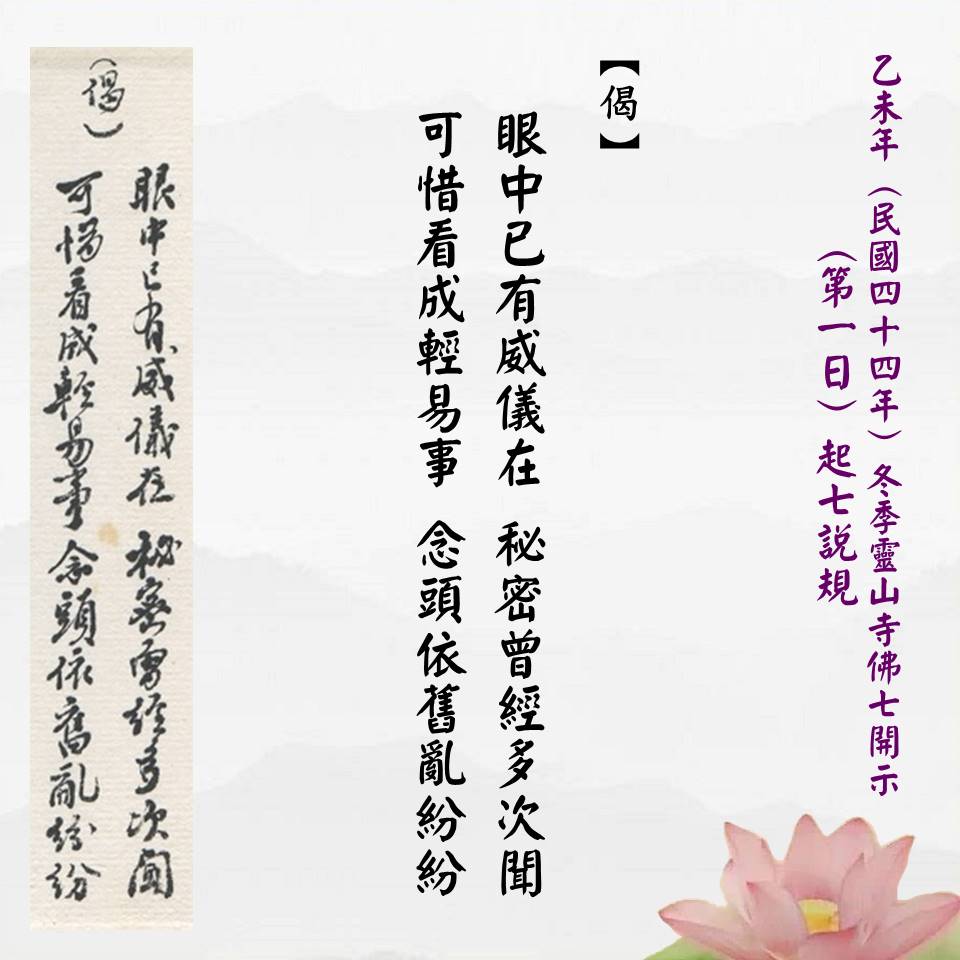 乙未年（民國四十四年）冬季靈山寺佛七開示
（第一日）起七說規
【偈】
眼中已有威儀在　秘密曾經多次聞
可惜看成輕易事　念頭依舊亂紛紛
（偈）
眼中已有威儀在　秘密曾經多次聞
可惜看成輕易事　念頭依舊亂紛紛